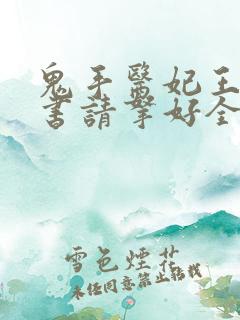 鬼手醫妃王
書請拏好全
雪色煙花
未經同意禁止轉載